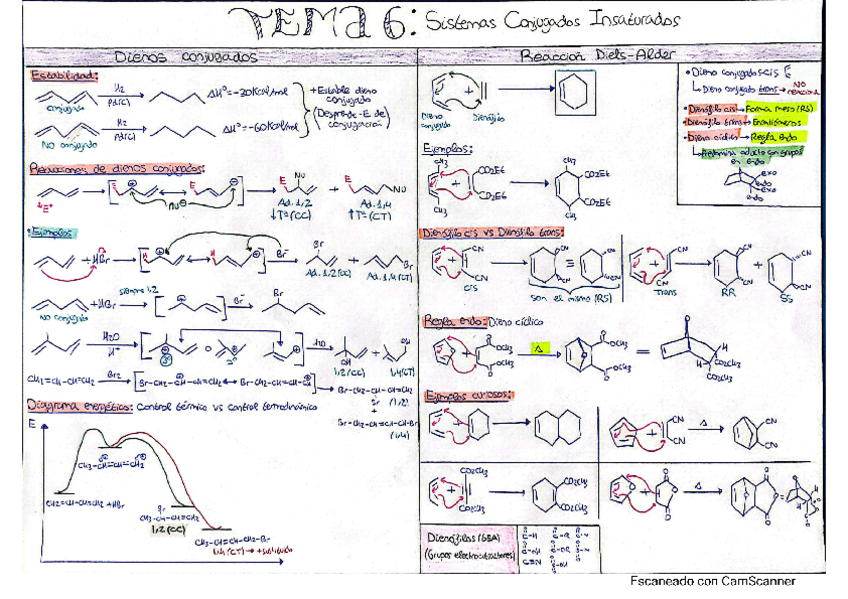 TEMA 6: Sistemas Conjugados Insaturados
Dienos conjugados
Estabilidad:
H2
Pd(C)
conjugado
ΔHº=-30Kcal/mol
H2
Pd(C)
NO conjugado
ΔHº=-60Kcal/mol
+Estable dieno
conjugado
(Desprende -E de
conjugación)
Reacciones de dienos conjugados:
E
E
Nu⊖
E
Nu
Ad. 1,2
↓Tª(CC)
+
E
Nu
Ad. 1,4
↑Tª(CT)
Ejemplos
+HBr
H
H
Br⁻
Br
Ad. 1,2(CC)
+
Br
Ad. 1,4(CT)
NO conjugado
+HBr
siempre 1,2
Br⁻
Br
H2O
H⁺
3º
o
H2O
OH
1,2(CC)
+
OH
1,4(CT)
CH2=CH-CH=CH2
Br2
Br-CH2-CH-CH=CH2
Br-CH2-CH=CH-CH2
Br-CH2-CH-CH=CH2
Br
(1,2)
+
Br-CH2-CH=CH-CH2-Br
(1,4)
Diagrama energético: Control térmico vs control termodinámico
E
CH3-CH=CH=CH2
CH2=CH-CH=CH2 +HBr
Br
CH3-CH-CH=CH2
1,2(CC)
CH3-CH=CH-CH2-Br
1,4(CT)→+sustituido
Reacción Diels-Alder
+
Dieno
conjugado
Dienófilo
Dieno conjugado s-cis
Dieno conjugado trans → NO
reacciona
Dienófilo cis → Forma meso (RS)
Dienófilo trans → Enantiómeros
Dieno cíclico → Regla Endo
en endo
exo
endo
exo
endo
Ejemplos:
CH3
CH3
+
COOEt
COOEt
CH3
COOEt
COOEt
CH3
Dienófilo cis vs Dienófilo trans:
+
CN
CN
cis
CN
CN
≡
CN
CN
son el mismo (RS)
+
CN
CN
trans
CN
CN
RR
+
CN
CN
SS
Regla endo: Dieno cíclico
+
O
OCH3
OCH3
O
Δ
O
OCH3
OCH3
O
=
H
H
CO2CH3
CO2CH3
Ejemplos curiosos:
+
+
CN
CN
Δ
CN
CN
+
CO2CH3
CO2CH3
CO2CH3
CO2CH3
O
+
O
O
O
Δ
O
O
O
O
=
Dienófilos (GEA)
(Grupos electroatractores)
C≡N
Escaneado con CamScanner